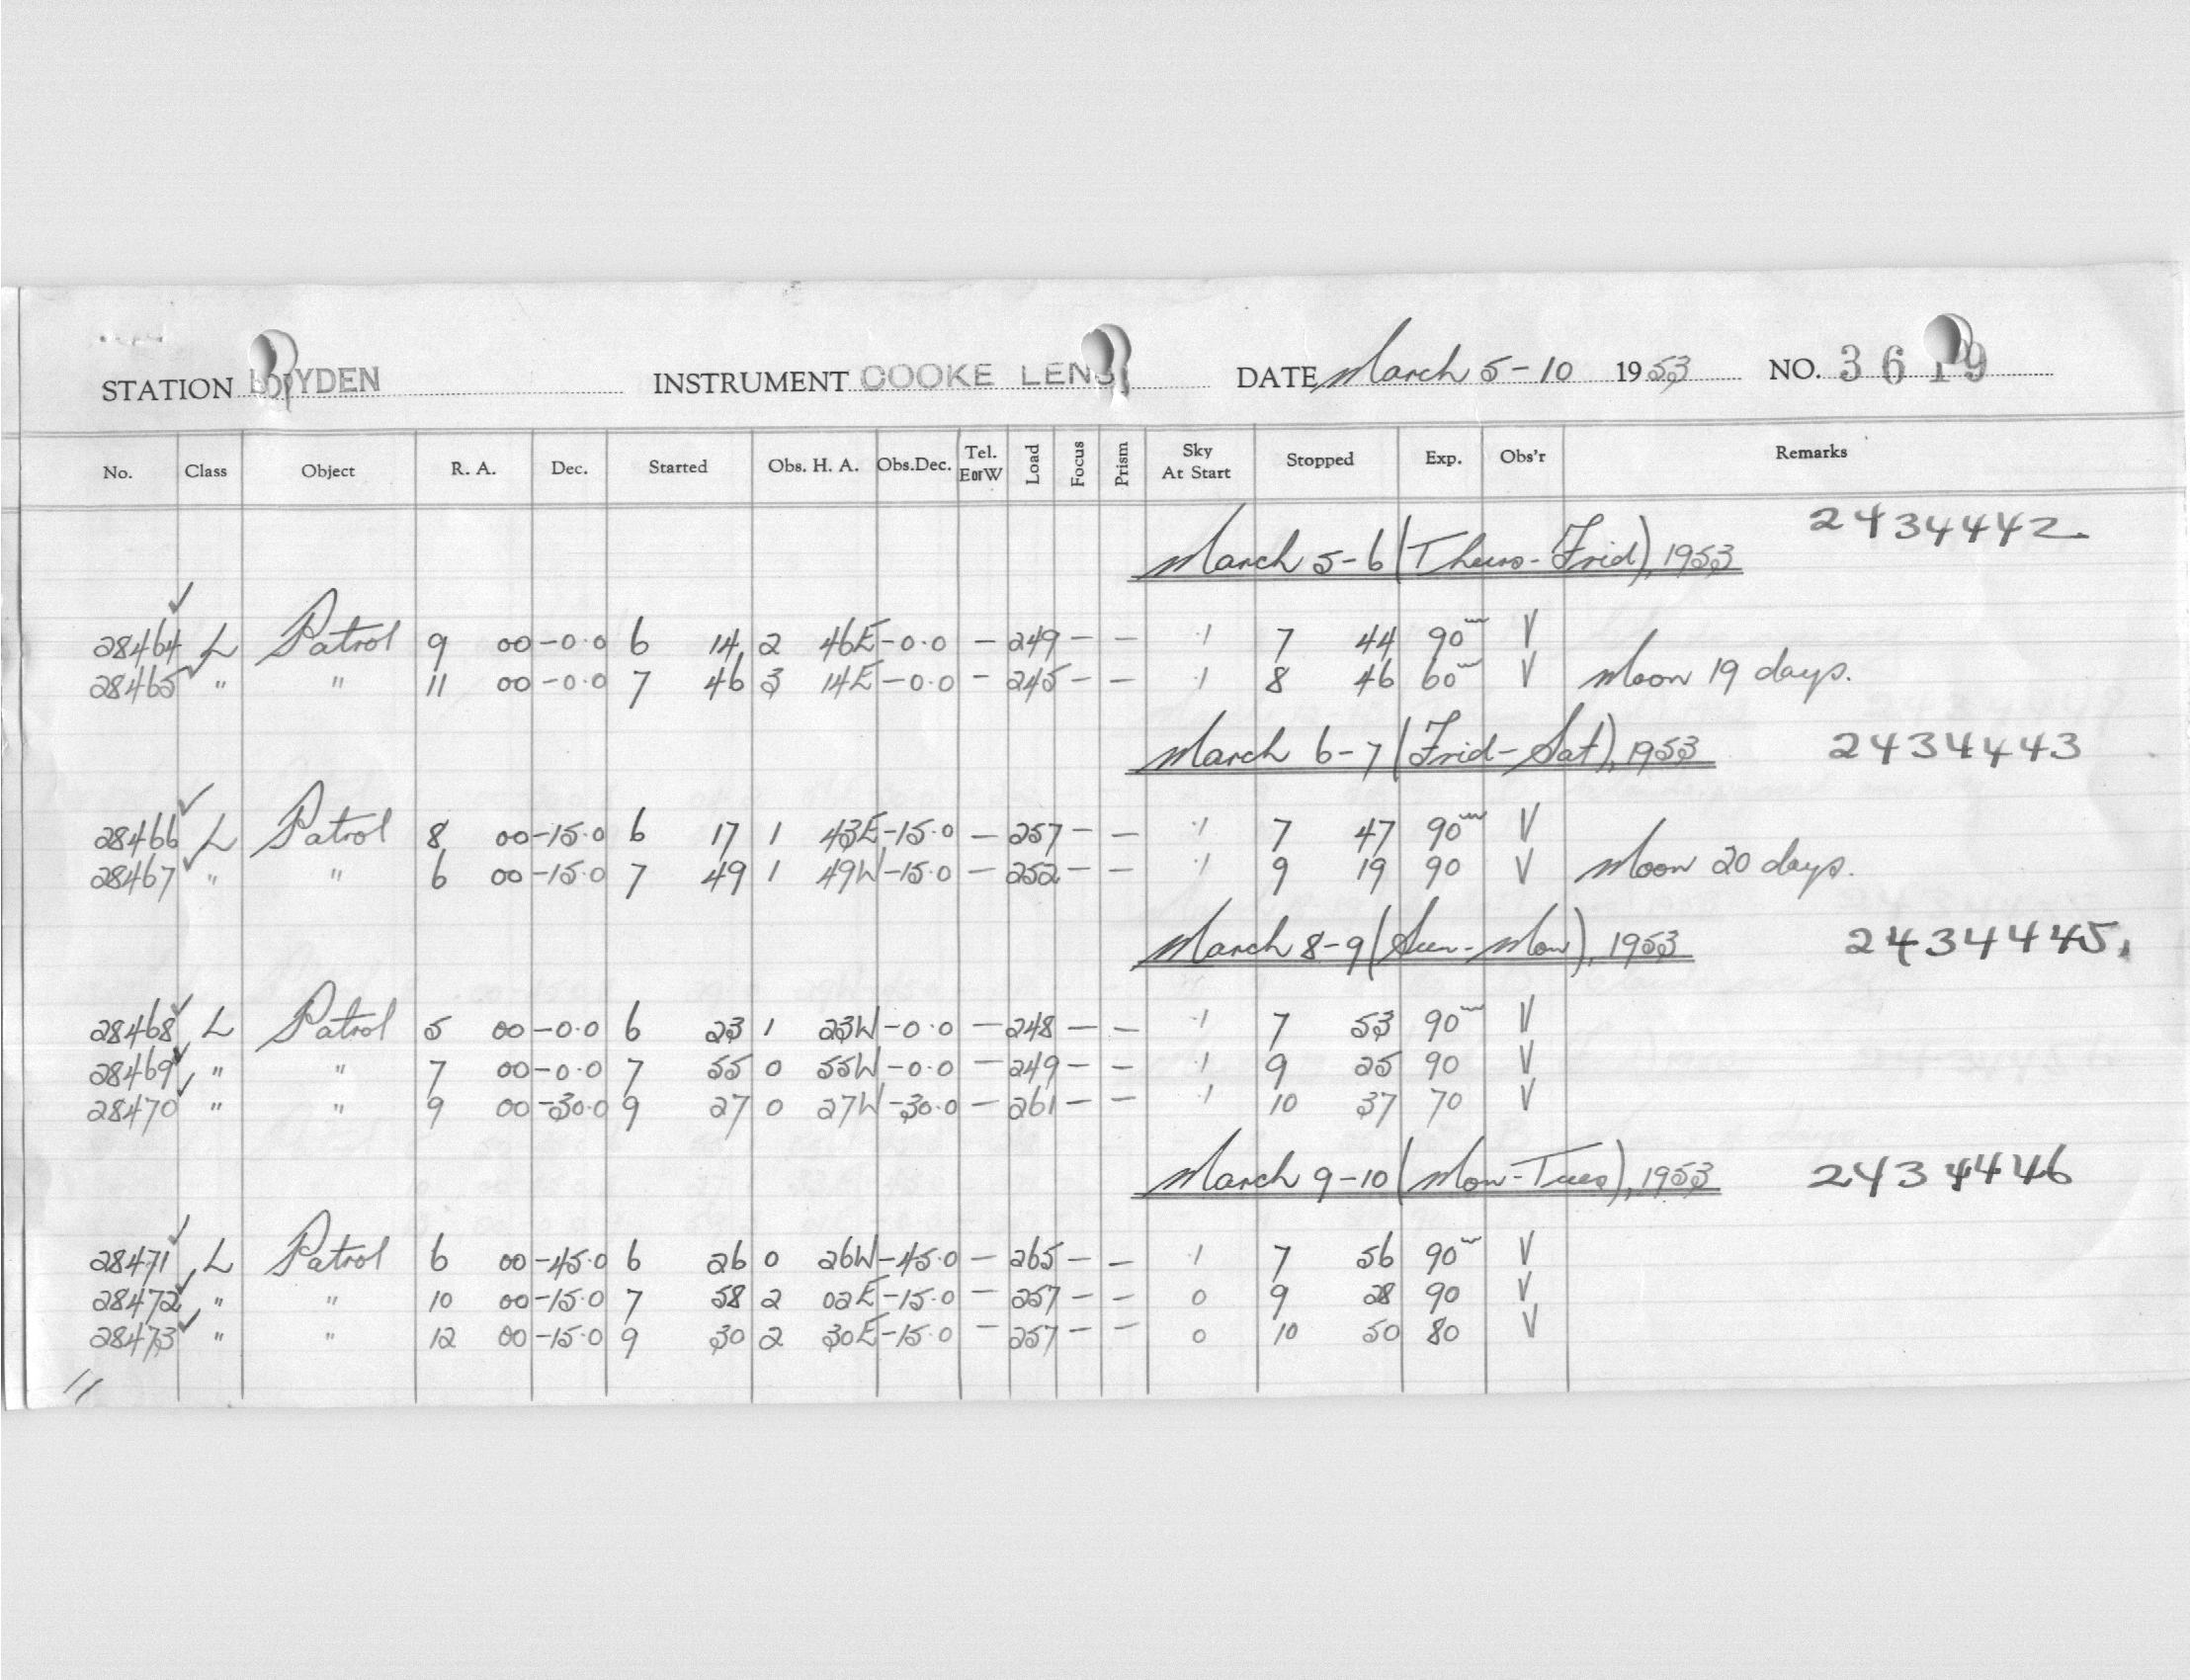 STATION BOYDEN INSTRUMENT COOKE LENS DATE March 5-10 1953 NO. 3619
No. Class Object R. A. Dec. Started Obs. H. A. Obs.Dec. Tel. E or W Load Focus Prism Sky At Start Stopped Exp. Obs'r Remarks
2434442.
March 5-6 (Thurs-Frid), 1953
28464 L Patrol 9 00 -0.0 6 14 2 46E -0.0 - 249 - - .1 7 44 90m V
28465 " " 11 00 -0.0 7 46 3 14E -0.0 - 245 - - .1 8 46 60m V Moon 19 days.
March 6-7 (Frid-Sat), 1953 2434443
28466 L Patrol 8 00 -15.0 6 17 1 43E -15.0 - 257 - - .1 7 47 90m V
28467 " " 6 00 -15.0 7 49 1 49W -15.0 - 252 - - .1 9 19 90 V Moon 20 days.
March 8-9 (Sun-Mon), 1953 2434445.
28468 L Patrol 5 00 -0.0 6 23 1 23W -0.0 - 248 - - .1 7 53 90m V
28469 " " 7 00 -0.0 7 55 0 55W -0.0 - 249 - - .1 9 25 90 V
28470 " " 9 00 -30.0 9 27 0 27W -30.0 - 261 - - .1 10 37 70 V
March 9-10 (Mon-Tues), 1953 2434446
28471 L Patrol 6 00 -45.0 6 26 0 26W -45.0 - 265 - - .1 7 56 90m V
28472 " " 10 00 -15.0 7 58 2 02E -15.0 - 257 - - 0 9 28 90 V
28473 " " 12 00 -15.0 9 30 2 30E -15.0 - 257 - - 0 10 50 80 V
11